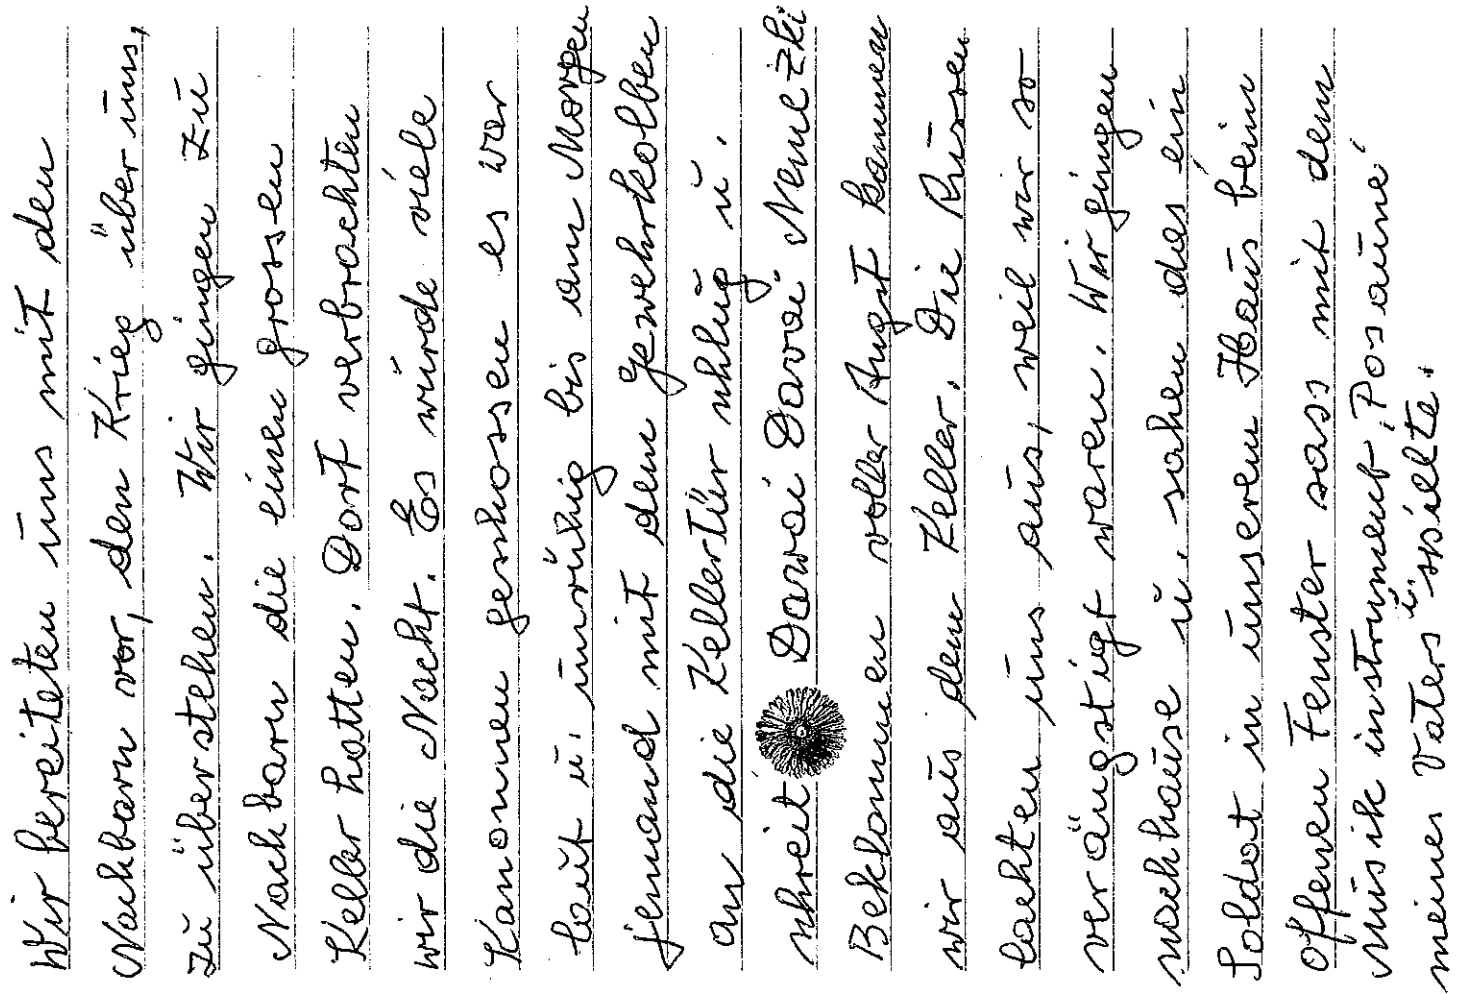 Wir bereiten uns mit den
Nachbarn vor, den Krieg über uns,
zu überstehen. Wir gingen zu
Nachbarn die einen grossen
Keller hatten. Dort verbrachten
wir die Nacht. Es würde viele
Kanonen geschossen es war
laut u. unrühig bis am Morgen
jemand mit dem gewehrkolben
an die Kellertür schlug u.
schreit Dawai Dawai Nemezki
Beklomnen voller Angst kammen
wir aus dem Keller. Die Rüssen
lachten uns aus, weil wir so
verängstigt waren. Wir gingen
nachhause u. sahen das ein
Soldat in unserem Haus beim
offenen Fenster sass mit dem
Musik instrument, Posaune'
meines Vaters u. spielte.